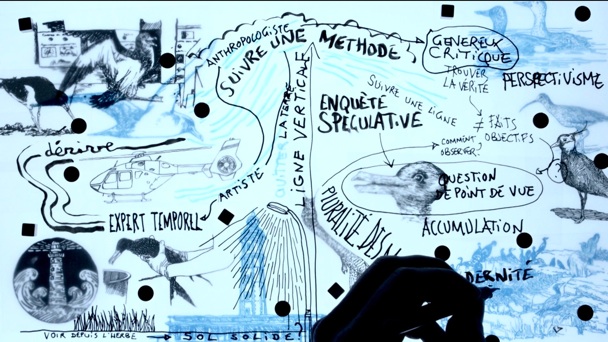 ANTHROPOLOGISTE
SUIVRE UNE METHODE
GENEREUX
CRITIQUE
TROUVER
LA VÉRITÉ
PERSPECTIVISME
SUIVRE UNE LIGNE
≠ FAITS
OBJECTIFS
COMMENT
OBSERVER?
ENQUÊTE
SPECULATIVE
LA TERRE
LIGNE VERTICALE
dérive
ARTISTE
EXPERT TEMPOREL
QUESTION
DE POINT DE VUE
PLURALITÉ DES
ACCUMULATION
DERNITÉ
VOIR DEPUIS L'HERBE
SOL SOLIDE